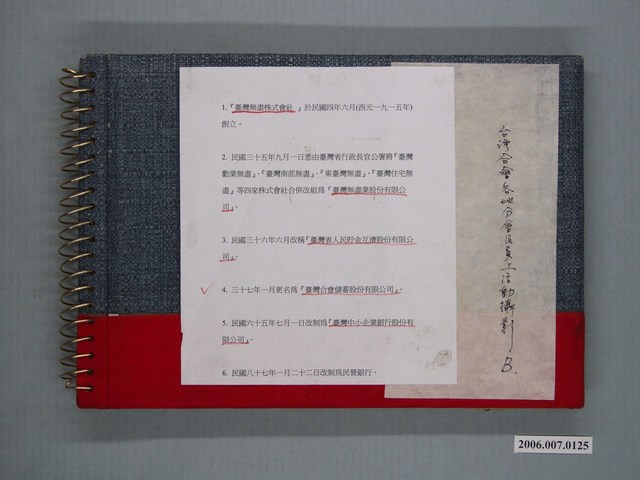 1.『臺灣無盡株式會社』於民國四年六月(西元一九一五年)
創立。
2. 民國三十五年九月一日悉由臺灣省行政長官公署將『臺灣
勸業無盡』、『臺灣南部無盡』、『東臺灣無盡』、『臺灣住宅無
盡』等四家株式會社合併改組為『臺灣無盡業股份有限公
司』。
3. 民國三十六年六月改稱『臺灣省人民貯金互濟股份有限公
司』。
4. 三十七年一月更名為『臺灣合會儲蓄股份有限公司』。
5. 民國六十五年七月一日改制為『臺灣中小企業銀行股份有
限公司』。
6. 民國八十七年一月二十二日改制為民營銀行。
台灣合會各地分會及員工活動攝影 B.
2006.007.0125